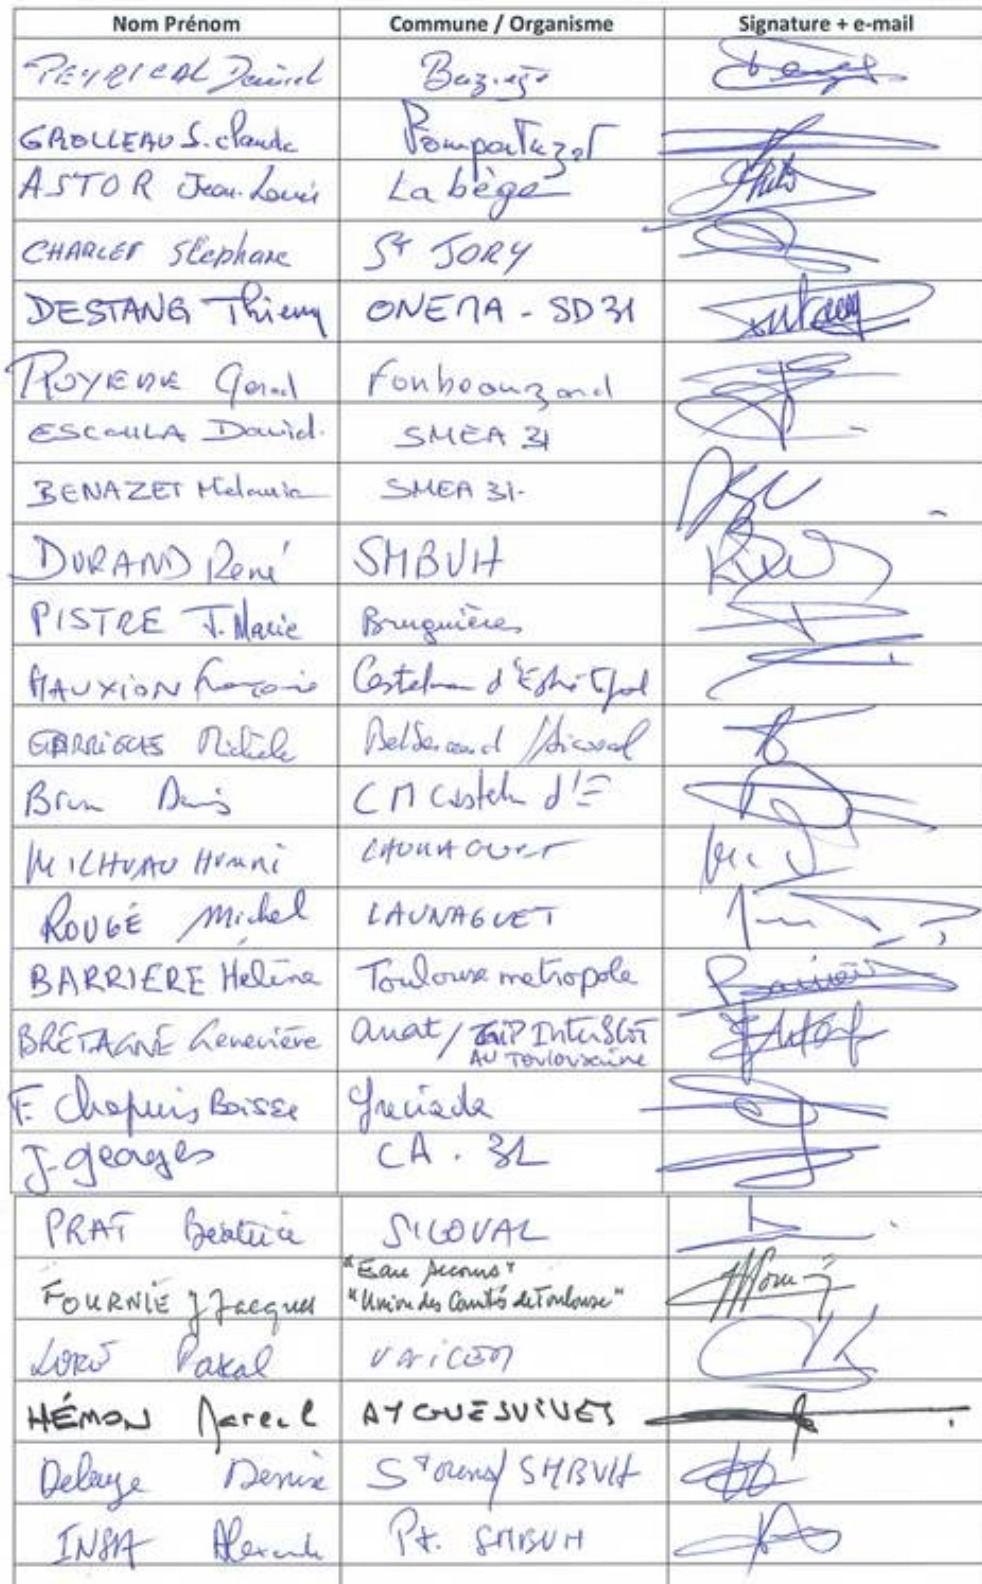 Nom Prénom Commune / Organisme Signature + e-mail
PEYRICAL Daniel Baziège
GROLLEAU J. Claude Pompertuzat
ASTOR Jean-Louis Labège
CHARLET Stéphane St JORY
DESTANG Thierry ONEMA - SD31
Gerard Fonbeauzard
ESCOULA David. SMEA 31
BENAZET Mélanie SMEA 31-
DURAND René SMBVH
PISTRE J. Marie Bruguières
MAUXION Françoise Castelnau d'Estrétefond
GARRIGUES Michèle
Brun Denis CM Casteln d'E
Henri LAUNAGUET
ROUGÉ Michel LAUNAGUET
BARRIERE Hélène Toulouse métropole
BRETAGNE Geneviève auat / GIP InterSCOT
AU Toulousaine
F. Chapuis Boisse Grenade
J. Georges CA. 31
PRAT Béatrice SICOVAL
"Eau Secours"
FOURNIÉ J Jacques "Union des Comités de Toulouse"
Pascal
HÉMON Marcel AYGUESVIVES
Denise St Orens / SMBVH
INSA Alexandre Pt. SMBVH